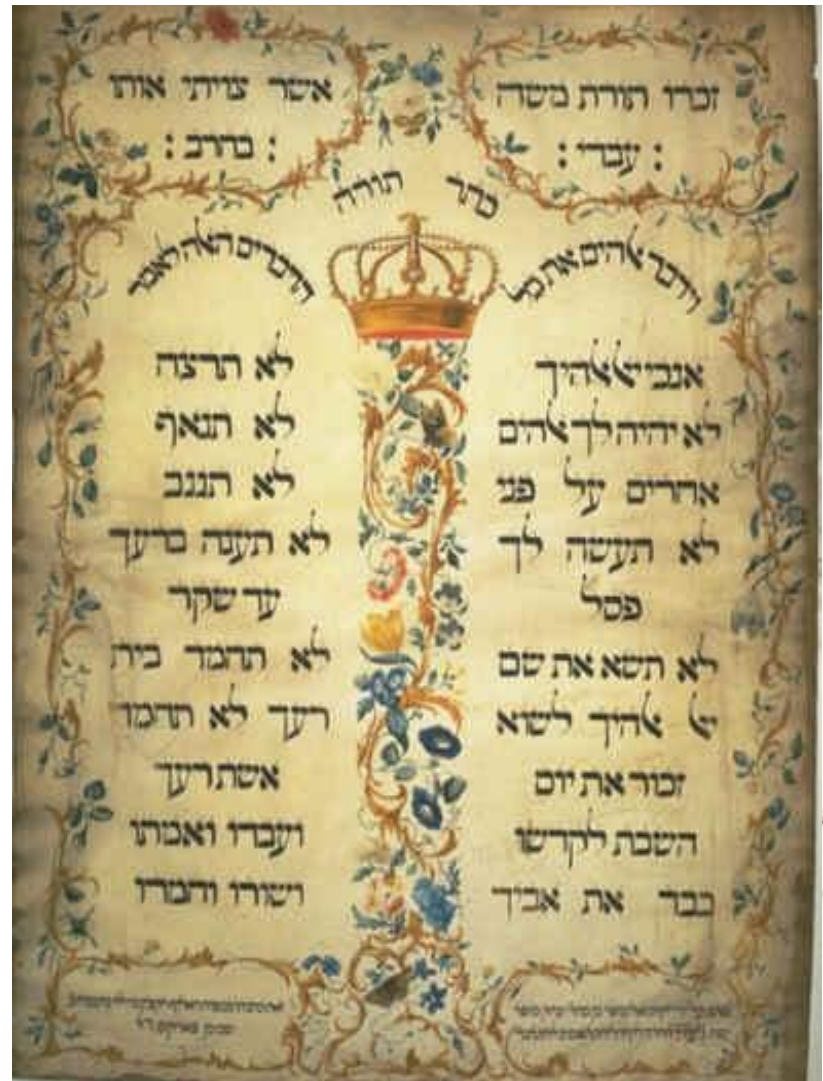 זכרו תורת משה
: עבדי :
אשר צויתי אותו
: בחרב :
כתר תורה
וידבר אלהים את כל
הדברים האלה לאמר
אנכי יי אלהיך
לא יהיה לך אלהים
אחרים על פני
לא תעשה לך
פסל
לא תשא את שם
יי אלהיך לשוא
זכור את יום
השבת לקדשו
כבד את אביך
לא תרצח
לא תנאף
לא תגנב
לא תענה ברעך
עד שקר
לא תחמד בית
רעך לא תחמד
אשת רעך
ועבדו ואמתו
ושורו וחמרו